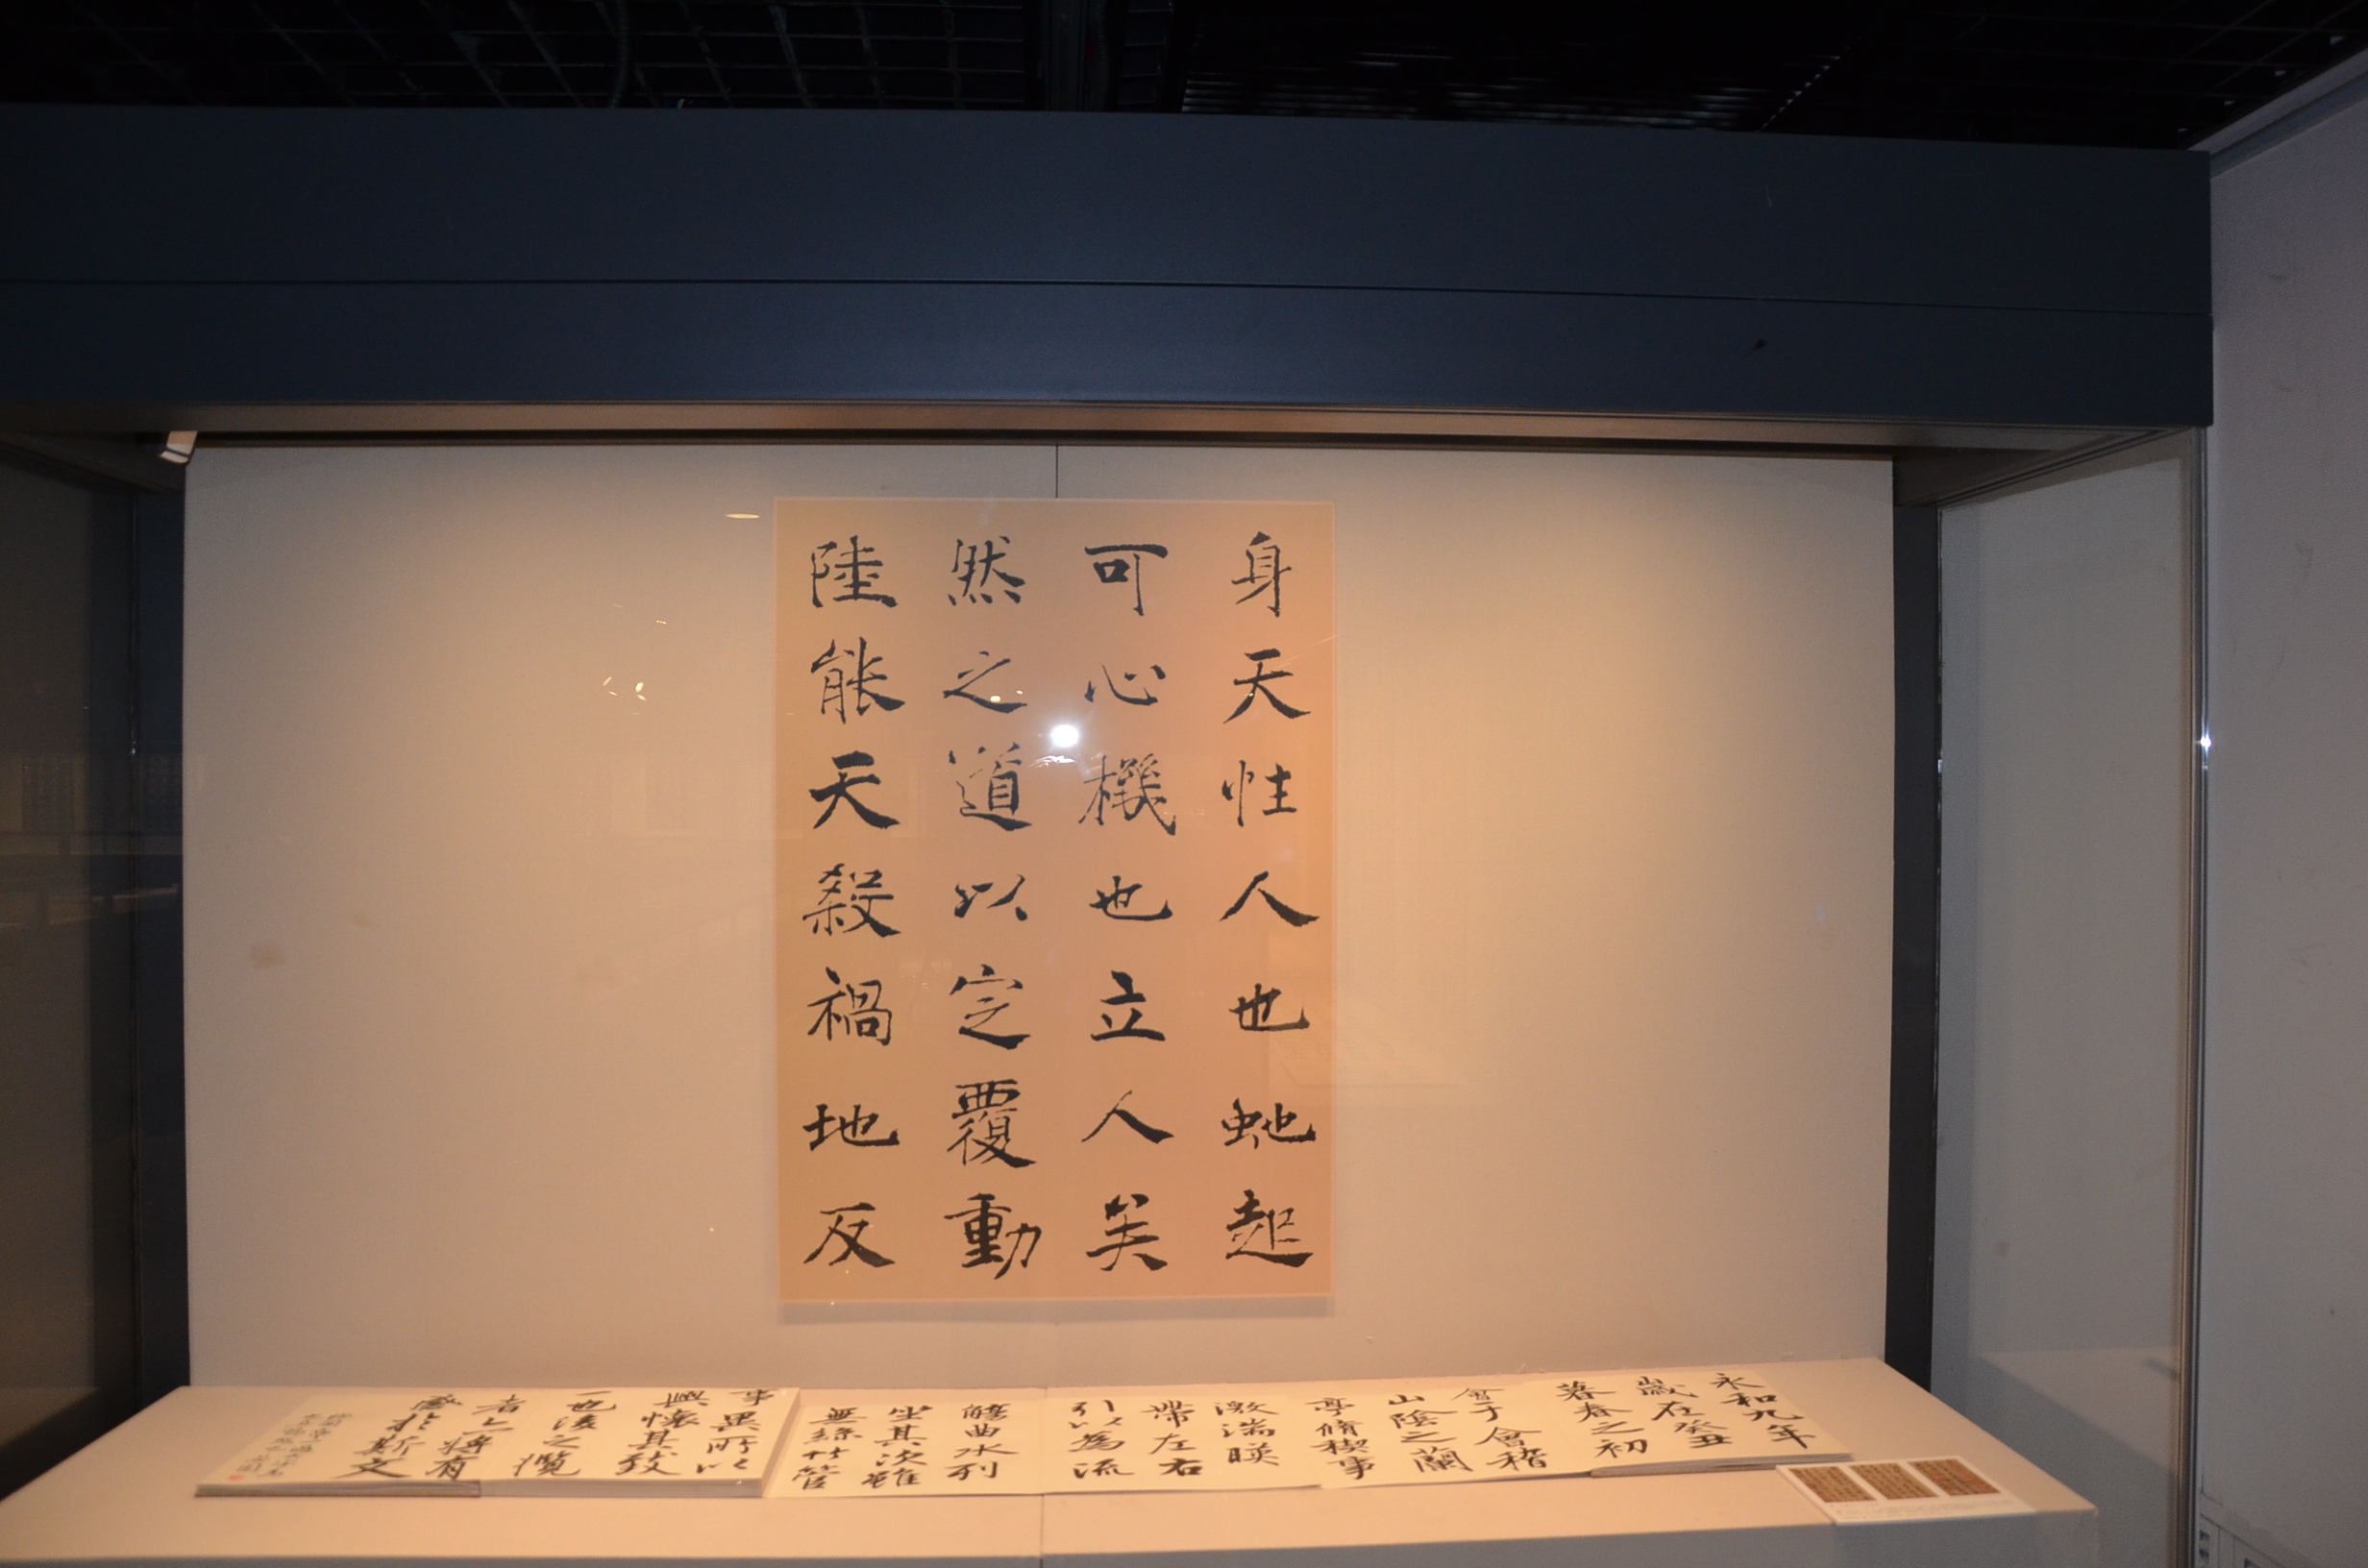 身天性人也虵起
可心機也立人矣
然之道以定覆動
陸能天殺禍地反
永和九年
歲在癸丑
暮春之初
會于會稽
山陰之蘭
亭脩稧事
激湍暎
帶左右
引以為流
觴曲水列
坐其次雖
無絲竹管
事異所以
興懷其致
一也後之攬
者上將有
感於斯文